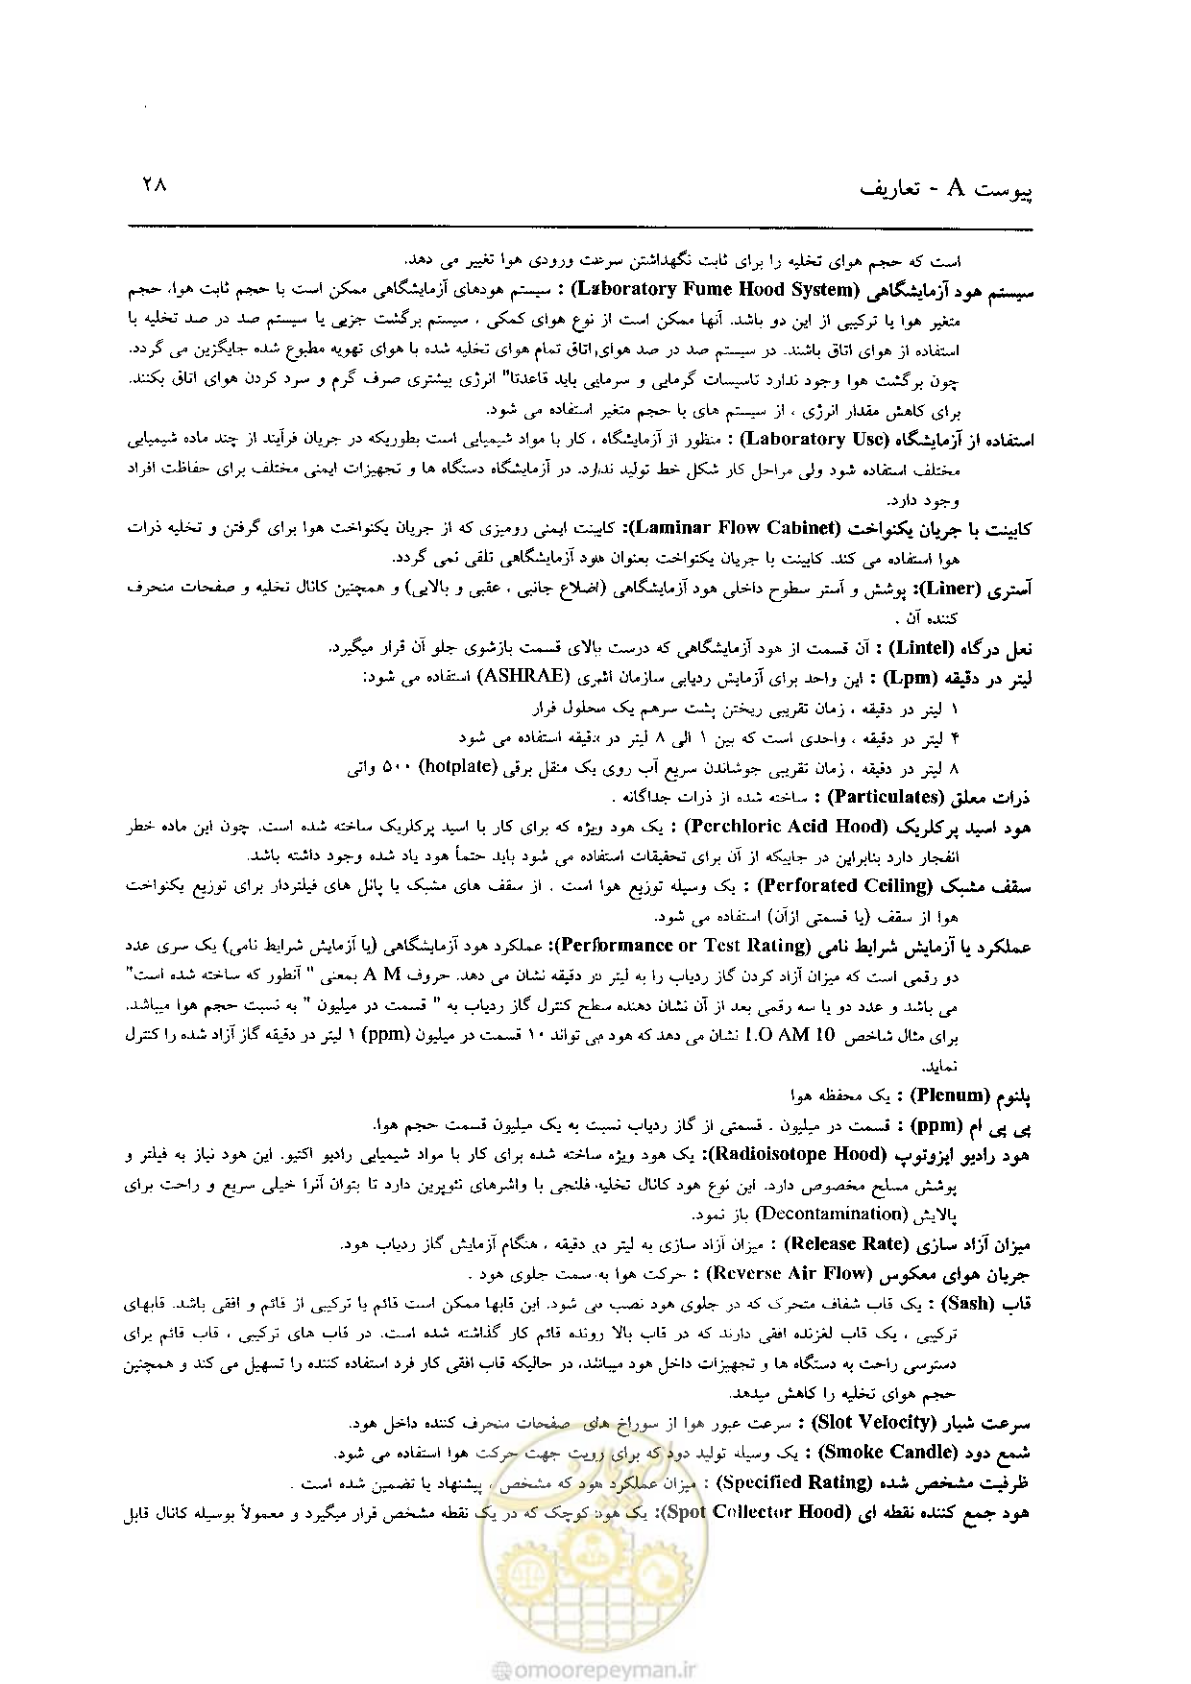 پیوست A - تعاریف
۲۸
است که حجم هوای تخلیه را برای ثابت نگهداشتن سرعت ورودی هوا تغییر می دهد.
سیستم هود آزمایشگاهی (Laboratory Fume Hood System) : سیستم هودهای آزمایشگاهی ممکن است با حجم ثابت هوا، حجم
متغیر هوا یا ترکیبی از این دو باشد. آنها ممکن است از نوع هوای کمکی ، سیستم برگشت جزیی یا سیستم صد در صد تخلیه با
استفاده از هوای اتاق باشند. در سیستم صد در صد هوای اتاق تمام هوای تخلیه شده با هوای تهویه مطبوع شده جایگزین می گردد.
چون برگشت هوا وجود ندارد تاسیسات گرمایی و سرمایی باید قاعدتا" انرژی بیشتری صرف گرم و سرد کردن هوای اتاق بکنند.
برای کاهش مقدار انرژی ، از سیستم های با حجم متغیر استفاده می شود.
استفاده از آزمایشگاه (Laboratory Use) : منظور از آزمایشگاه ، کار با مواد شیمیایی است بطوریکه در جریان فرآیند از چند ماده شیمیایی
مختلف استفاده شود ولی مراحل کار شکل خط تولید ندارد. در آزمایشگاه دستگاه ها و تجهیزات ایمنی مختلف برای حفاظت افراد
وجود دارد.
کابینت با جریان یکنواخت (Laminar Flow Cabinet): کابینت ایمنی رومیزی که از جریان یکنواخت هوا برای گرفتن و تخلیه ذرات
هوا استفاده می کند. کابینت با جریان یکنواخت بعنوان هود آزمایشگاهی تلقی نمی گردد.
آستری (Liner): پوشش و آستر سطوح داخلی هود آزمایشگاهی (اضلاع جانبی ، عقبی و بالایی) و همچنین کانال تخلیه و صفحات منحرف
کننده آن .
نعل درگاه (Lintel) : آن قسمت از هود آزمایشگاهی که درست بالای قسمت بازشوی جلو آن قرار میگیرد.
لیتر در دقیقه (Lpm) : این واحد برای آزمایش ردیابی سازمان اشری (ASHRAE) استفاده می شود:
۱ لیتر در دقیقه ، زمان تقریبی ریختن پشت سرهم یک محلول فرار
۴ لیتر در دقیقه ، واحدی است که بین ۱ الی ۸ لیتر در دقیقه استفاده می شود
۸ لیتر در دقیقه ، زمان تقریبی جوشاندن سریع آب روی یک منقل برقی (hotplate) ۵۰۰ واتی
ذرات معلق (Particulates) : ساخته شده از ذرات جداگانه .
هود اسید پرکلریک (Perchloric Acid Hood) : یک هود ویژه که برای کار با اسید پرکلریک ساخته شده است. چون این ماده خطر
انفجار دارد بنابراین در جاییکه از آن برای تحقیقات استفاده می شود باید حتماً هود یاد شده وجود داشته باشد.
سقف مشبک (Perforated Ceiling) : یک وسیله توزیع هوا است . از سقف های مشبک یا پانل های فیلتردار برای توزیع یکنواخت
هوا از سقف (یا قسمتی ازآن) استفاده می شود.
عملکرد یا آزمایش شرایط نامی (Performance or Test Rating): عملکرد هود آزمایشگاهی (یا آزمایش شرایط نامی) یک سری عدد
دو رقمی است که میزان آزاد کردن گاز ردیاب را به لیتر در دقیقه نشان می دهد. حروف A M بمعنی " آنطور که ساخته شده است"
می باشد و عدد دو یا سه رقمی بعد از آن نشان دهنده سطح کنترل گاز ردیاب به " قسمت در میلیون " به نسبت حجم هوا میباشد.
برای مثال شاخص 1.O AM 10 نشان می دهد که هود می تواند ۱۰ قسمت در میلیون (ppm) ۱ لیتر در دقیقه گاز آزاد شده را کنترل
نماید.
پلنوم (Plenum) : یک محفظه هوا
پی پی ام (ppm) : قسمت در میلیون . قسمتی از گاز ردیاب نسبت به یک میلیون قسمت حجم هوا.
هود رادیو ایزوتوپ (Radioisotope Hood): یک هود ویژه ساخته شده برای کار با مواد شیمیایی رادیو اکتیو. این هود نیاز به فیلتر و
پوشش مسلح مخصوص دارد. این نوع هود کانال تخلیه فلنجی با واشرهای نئوپرین دارد تا بتوان آنرا خیلی سریع و راحت برای
پالایش (Decontamination) باز نمود.
میزان آزاد سازی (Release Rate) : میزان آزاد سازی به لیتر در دقیقه ، هنگام آزمایش گاز ردیاب هود.
جریان هوای معکوس (Reverse Air Flow) : حرکت هوا به سمت جلوی هود .
قاب (Sash) : یک قاب شفاف متحرک که در جلوی هود نصب می شود. این قابها ممکن است قائم یا ترکیبی از قائم و افقی باشد. قابهای
ترکیبی ، یک قاب لغزنده افقی دارند که در قاب بالا رونده قائم کار گذاشته شده است. در قاب های ترکیبی ، قاب قائم برای
دسترسی راحت به دستگاه ها و تجهیزات داخل هود میباشد، در حالیکه قاب افقی کار فرد استفاده کننده را تسهیل می کند و همچنین
حجم هوای تخلیه را کاهش میدهد.
سرعت شیار (Slot Velocity) : سرعت عبور هوا از سوراخ های صفحات منحرف کننده داخل هود.
شمع دود (Smoke Candle) : یک وسیله تولید دود که برای رویت جهت حرکت هوا استفاده می شود.
ظرفیت مشخص شده (Specified Rating) : میزان عملکرد هود که مشخص ، پیشنهاد یا تضمین شده است .
هود جمع کننده نقطه ای (Spot Collector Hood): یک هود کوچک که در یک نقطه مشخص قرار میگیرد و معمولاً بوسیله کانال قابل
@omoorepeyman.ir